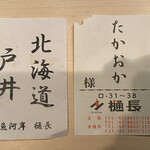 北海道
戸井
魚河岸 樋長
たかおか
様
ロ-31~38
樋長